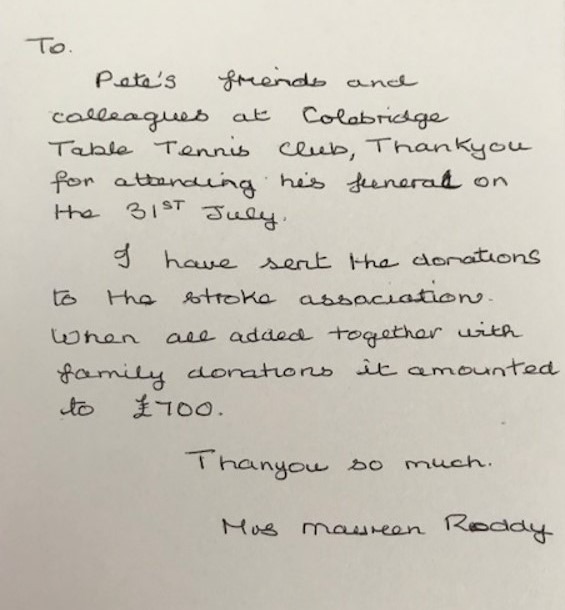 To.
Pete's friends and
colleagues at Colebridge
Table Tennis Club, Thankyou
for attending his funeral on
the 31ST July.
I have sent the donations
to the stroke association.
When all added together with
family donations it amounted
to £700.
Thanyou so much.
Mrs Maureen Roddy